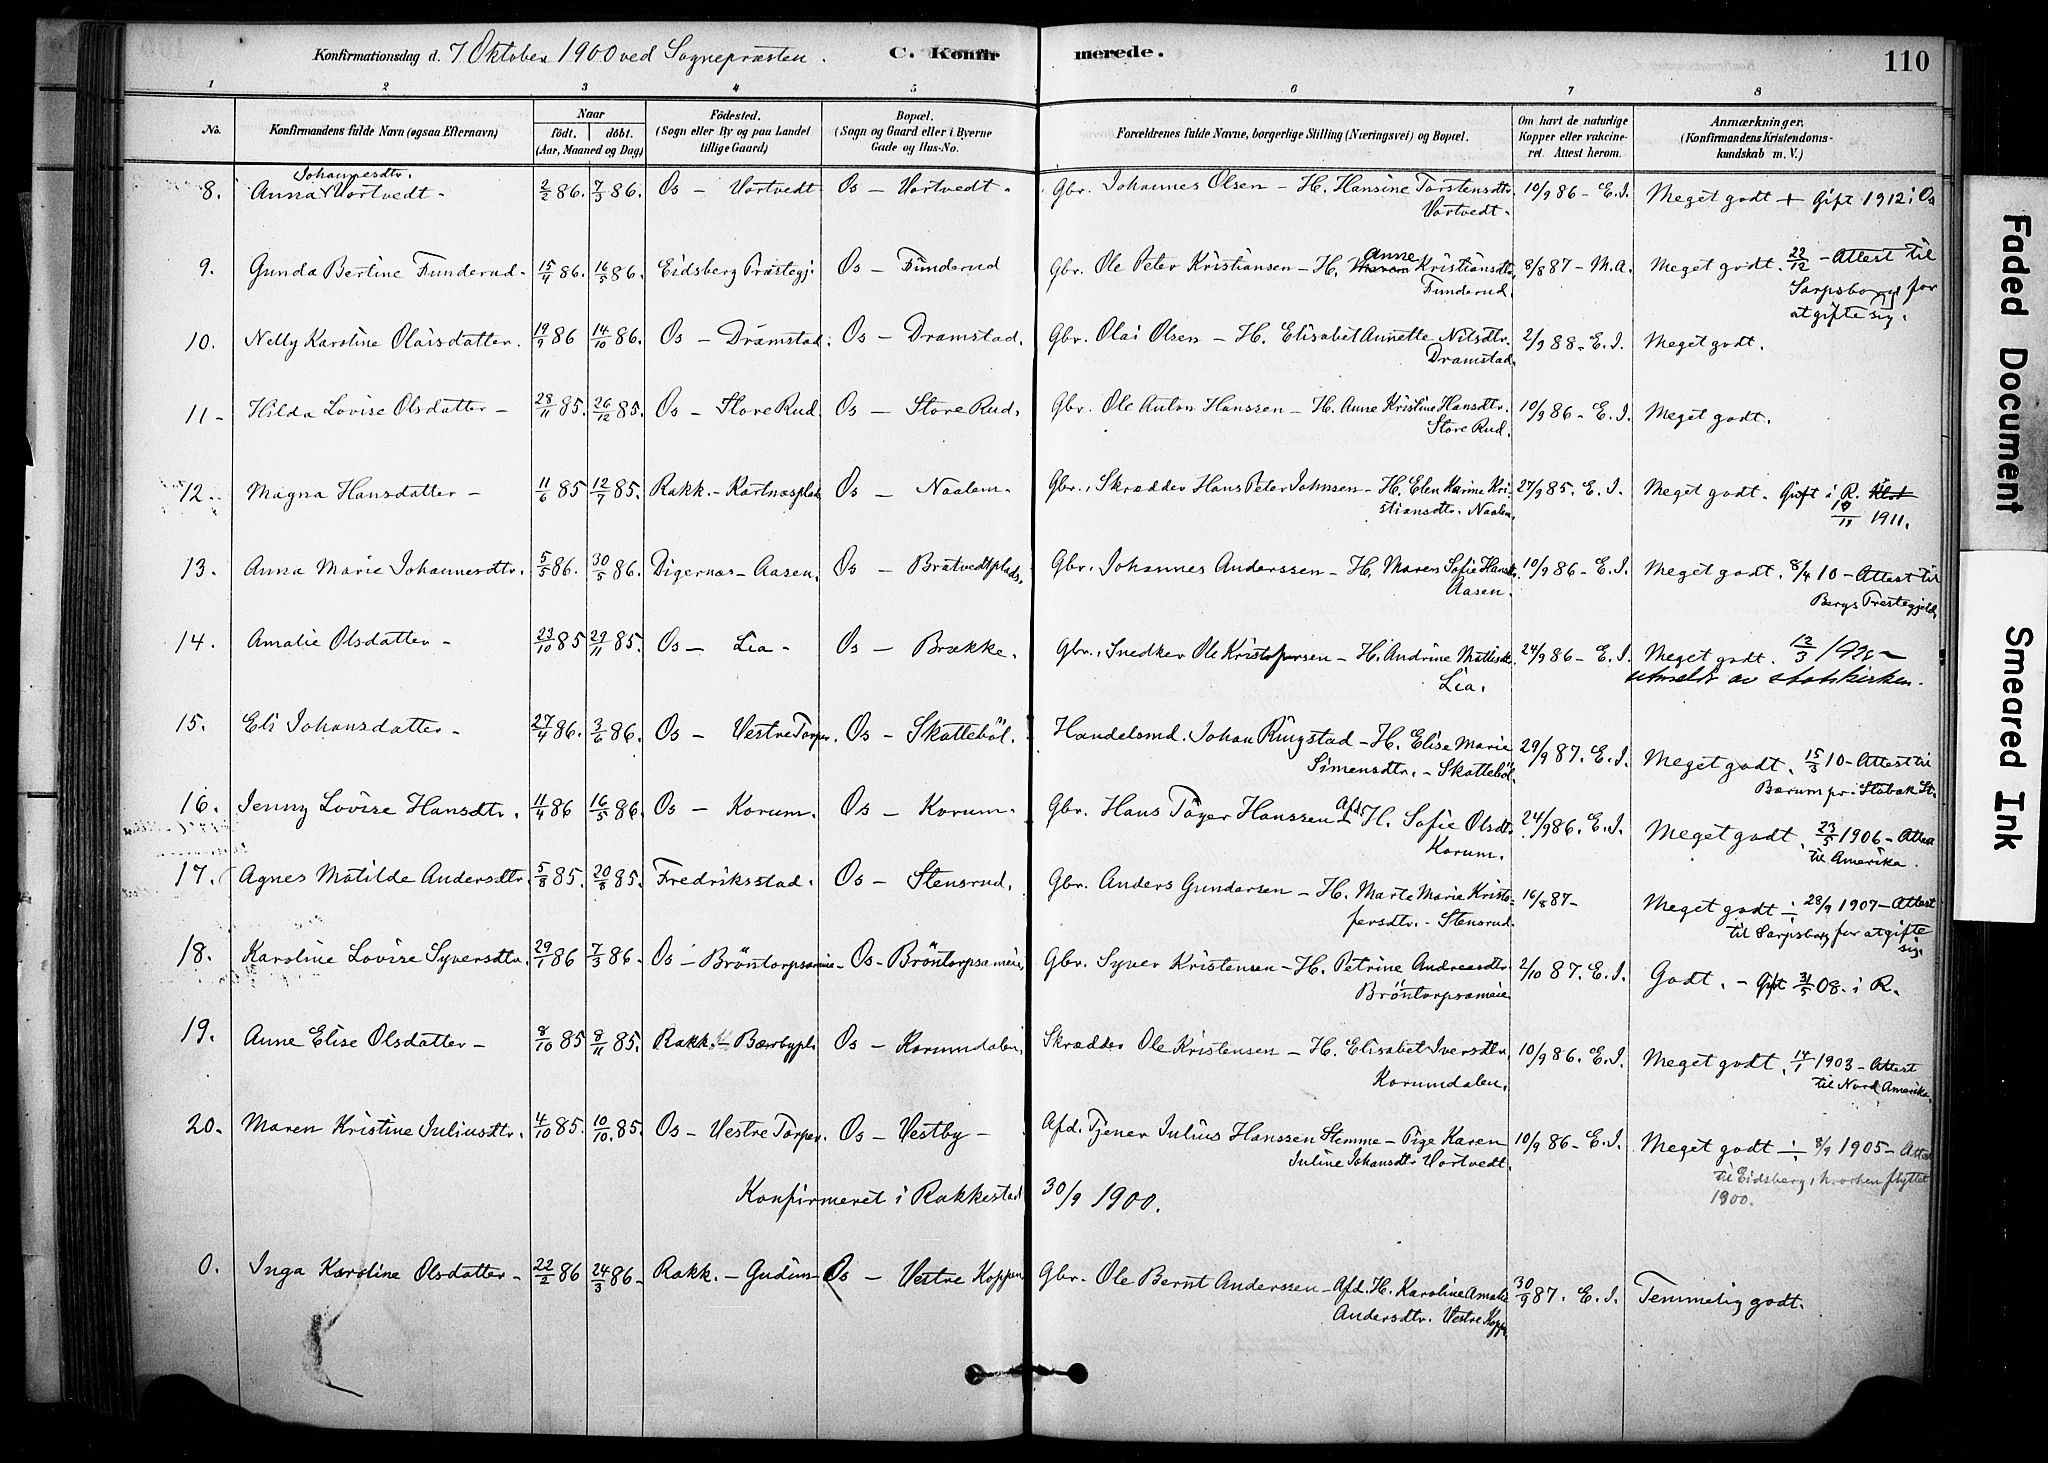 Konfirmationsdag d. 7 Oktober 1900 ved Sognepræsten. C. Konfirmerede. 110
1 2 3 4 5 6 7 8
No. Konfirmandens fulde Navn (ogsaa Efternavn) Naar født, døbt. (Aar, Maaned og Dag) Fødested. (Sogn eller By og paa Landet tillige Gaard) Bopæl. (Sogn og Gaard eller i Byerne Gade og Hus-No. Forældrenes fulde Navne, borgerlige Stilling (Næringsvei) og Bopæl. Om havt de naturlige Kopper eller vakcineret. Attest herom. Anmærkninger. (Konfirmandens Kristendomskundskab m. V.)
Johannesdtr.
8. Anna Vortvedt - 2/2 86. 7/3 86. Os - Vortvedt Os - Vortvedt. Gbr. Johannes Olsen - H. Hansine Torstensdtr. 10/9 86 - E. I. Meget godt + Gift 1912 i Os
Vortvedt.
9. Gunda Bertine Funderud. 15/4 86. 16/5 86. Eidsberg Præstegj. Os - Funderud Gbr. Ole Peter Kristiansen - H. Anne Kristiansdtr. 8/8 87 - M. A. Meget godt. 22/12 - Attest til
Funderud. Sarpsborg for
at gifte sig.
10. Nelly Karoline Olaisdatter. 19/9 86 14/10 86. Os - Dramstad. Os - Dramstad. Gbr. Olai Olsen - H. Elisabet Annette Nilsdtr. 2/9 88 - E. I. Meget godt.
Dramstad.
11 - Hilda Lovise Olsdatter - 28/11 85. 26/12 85. Os - Store Rud. Os - Store Rud. Gbr. Ole Anton Hanssen - H. Anne Kristine Hansdtr. 10/9 86 - E. I. Meget godt.
Store Rud.
12. Magna Hansdatter - 11/6 85 12/7 85. Rakk. - Kartnæsplads Os - Naalem. Gbr. Skrædder Hans Peter Johnsen - H. Elen Karine Kri- 27/9 85. E. I. Meget godt. Gift i R.
stiansdtr. Naalem. 10/11 1911.
13. Anna Marie Johannesdtr. 5/5 86. 30/5 86. Digernæs - Aasen. Os - Bratvedtplads. Gbr. Johannes Anderssen - H. Maren Sofie Hansdtr. 10/9 86 - E. I. Meget godt. 8/4 10 - Attest til
Aasen. Bergs Præstegjeld.
14. Amalie Olsdatter - 23/10 85 29/11 85. Os - Lia - Os - Brække. Gbr. Snedker Ole Kristofersen - H. Andrine Mathisdtr. 24/9 86 - E. I. Meget godt. 12/3
Lia. utmeldt av statskirken.
15. Eli Johansdatter - 27/4 86. 3/6 86. Os - Vestre Torper. Os - Skattebøl. Handelsmd. Johan Ringstad - H. Elise Marie 29/9 87. E. I. Meget godt. 15/3 10 - Attest til
Simensdtr. - Skattebøl. Bærum pr. Stabæk St.
16. Jenny Lovise Hansdtr. 11/4 86 16/5 86. Os - Korum. Os - Korum. Gbr. Hans Tøger Hanssen - Afd. H. Sofie Olsdtr. 24/9 86. E. I. Meget godt. 23/5 1906 - Attest
Korum. til Amerika.
17. Agnes Matilde Andersdtr. 5/8 85. 20/8 85. Fredriksstad. Os - Stensrud. Gbr. Anders Gundersen - H. Marte Marie Kristo- 16/8 87 - Meget godt ÷ 28/9 1907 - Attest
fersdtr. - Stensrud. til Sarpsborg for at gifte
sig.
18. Karoline Lovise Syversdtr. 29/1 86 7/3 86 - Os - Brøntorpsameie - Os - Brøntorpsameie Gbr. Syver Kristensen - H. Petrine Andreasdtr. 2/10 87. E. I. Godt. - Gift 31/5 08. i R.
Brøntorpsameie
19. Anne Elise Olsdatter - 8/10 85 8/11 85. Rakk. - Bærbypl. Os - Korumdalen. Skrædder Ole Kristensen - H. Elisabet Iversdtr. 10/9 86. E. I. Meget godt. 17/1 1903 - Attest
Korumdalen. til Nord Amerika.
20. Maren Kristine Juliusdtr. 4/10 85. 10/10 85. Os - Vestre Torper. Os - Vestby - Afd. Tjener Julius Hanssen Stemme - Pige Karen 10/9 86 - E. I. Meget godt ÷ 8/9 1905 - Attest
Juline Johansdtr Vortvedt. til Eidsberg, hvorhen flyttet
1900.
Konfirmeret i Rakkestad 30/9 1900.
0. Inga Karoline Olsdatter - 22/2 86 24/3 86 - Rakk. - Gudim - Os - Vestre Koppen Gbr. Ole Bernt Anderssen - Afd. H. Karoline Amalie 30/9 87. E. I. Temmelig godt.
Andersdtr. Vestre Kopp.
Faded Document
Smeared Ink